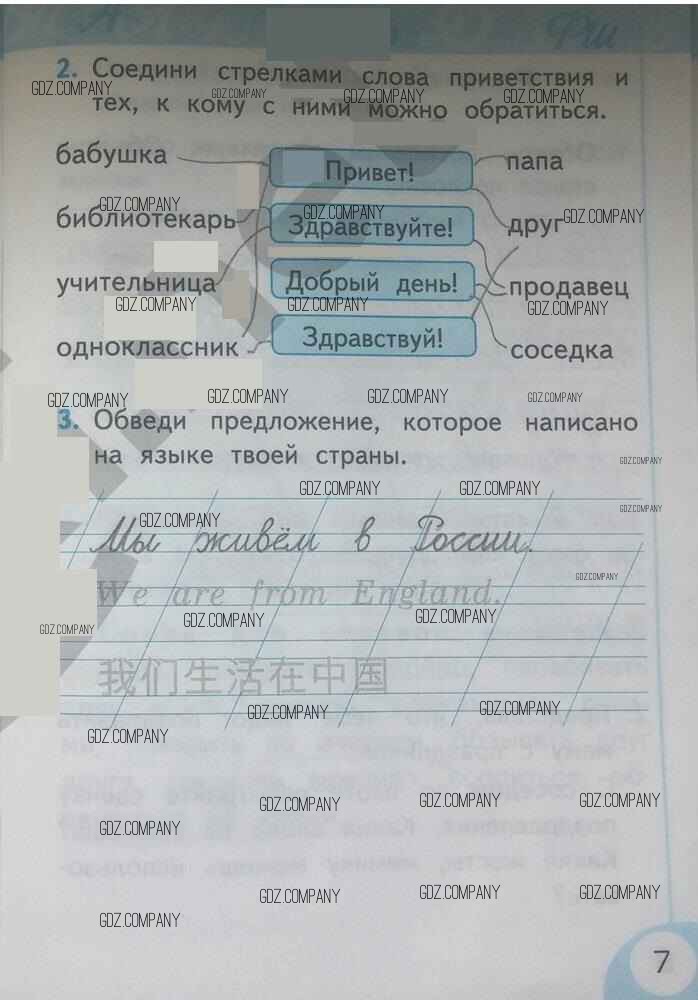 2. Соедини стрелками слова приветствия и
тех, к кому с ними можно обратиться.
бабушка
библиотекарь
учительница
одноклассник
Привет!
Здравствуйте!
Добрый день!
Здравствуй!
папа
друг
продавец
соседка
3. Обведи предложение, которое написано
на языке твоей страны.
Мы живём в России.
We are from England.
我们生活在中国
7
GDZ.COMPANY